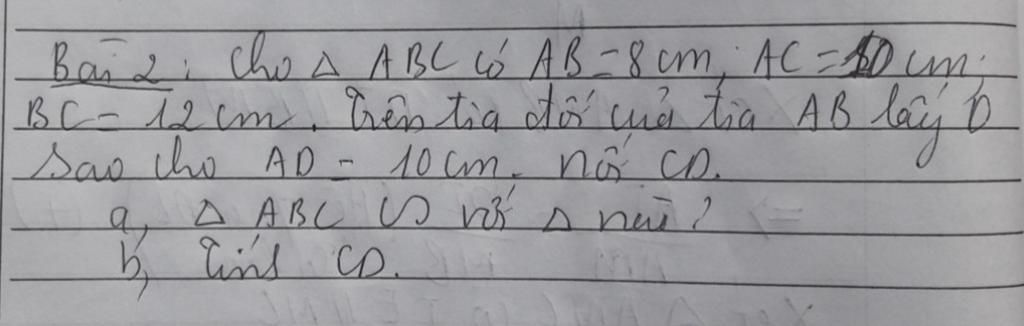 Bài 2: Cho △ ABC có AB = 8 cm; AC = 10 cm;
BC = 12 cm. Trên tia đối của tia AB lấy D
sao cho AD = 10 cm. nối CD.
a, △ ABC ∽ với △ nào?
b, Tính CD.